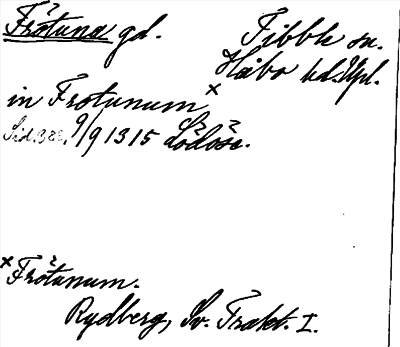 Frötuna gd.
Tibble sn.
Håbo hd. Upl.
in Frotunum x
Sid. 388, 9/9 1315 Lödöse.
x Frötunum.
Rydberg, Sv. Trakt. I.